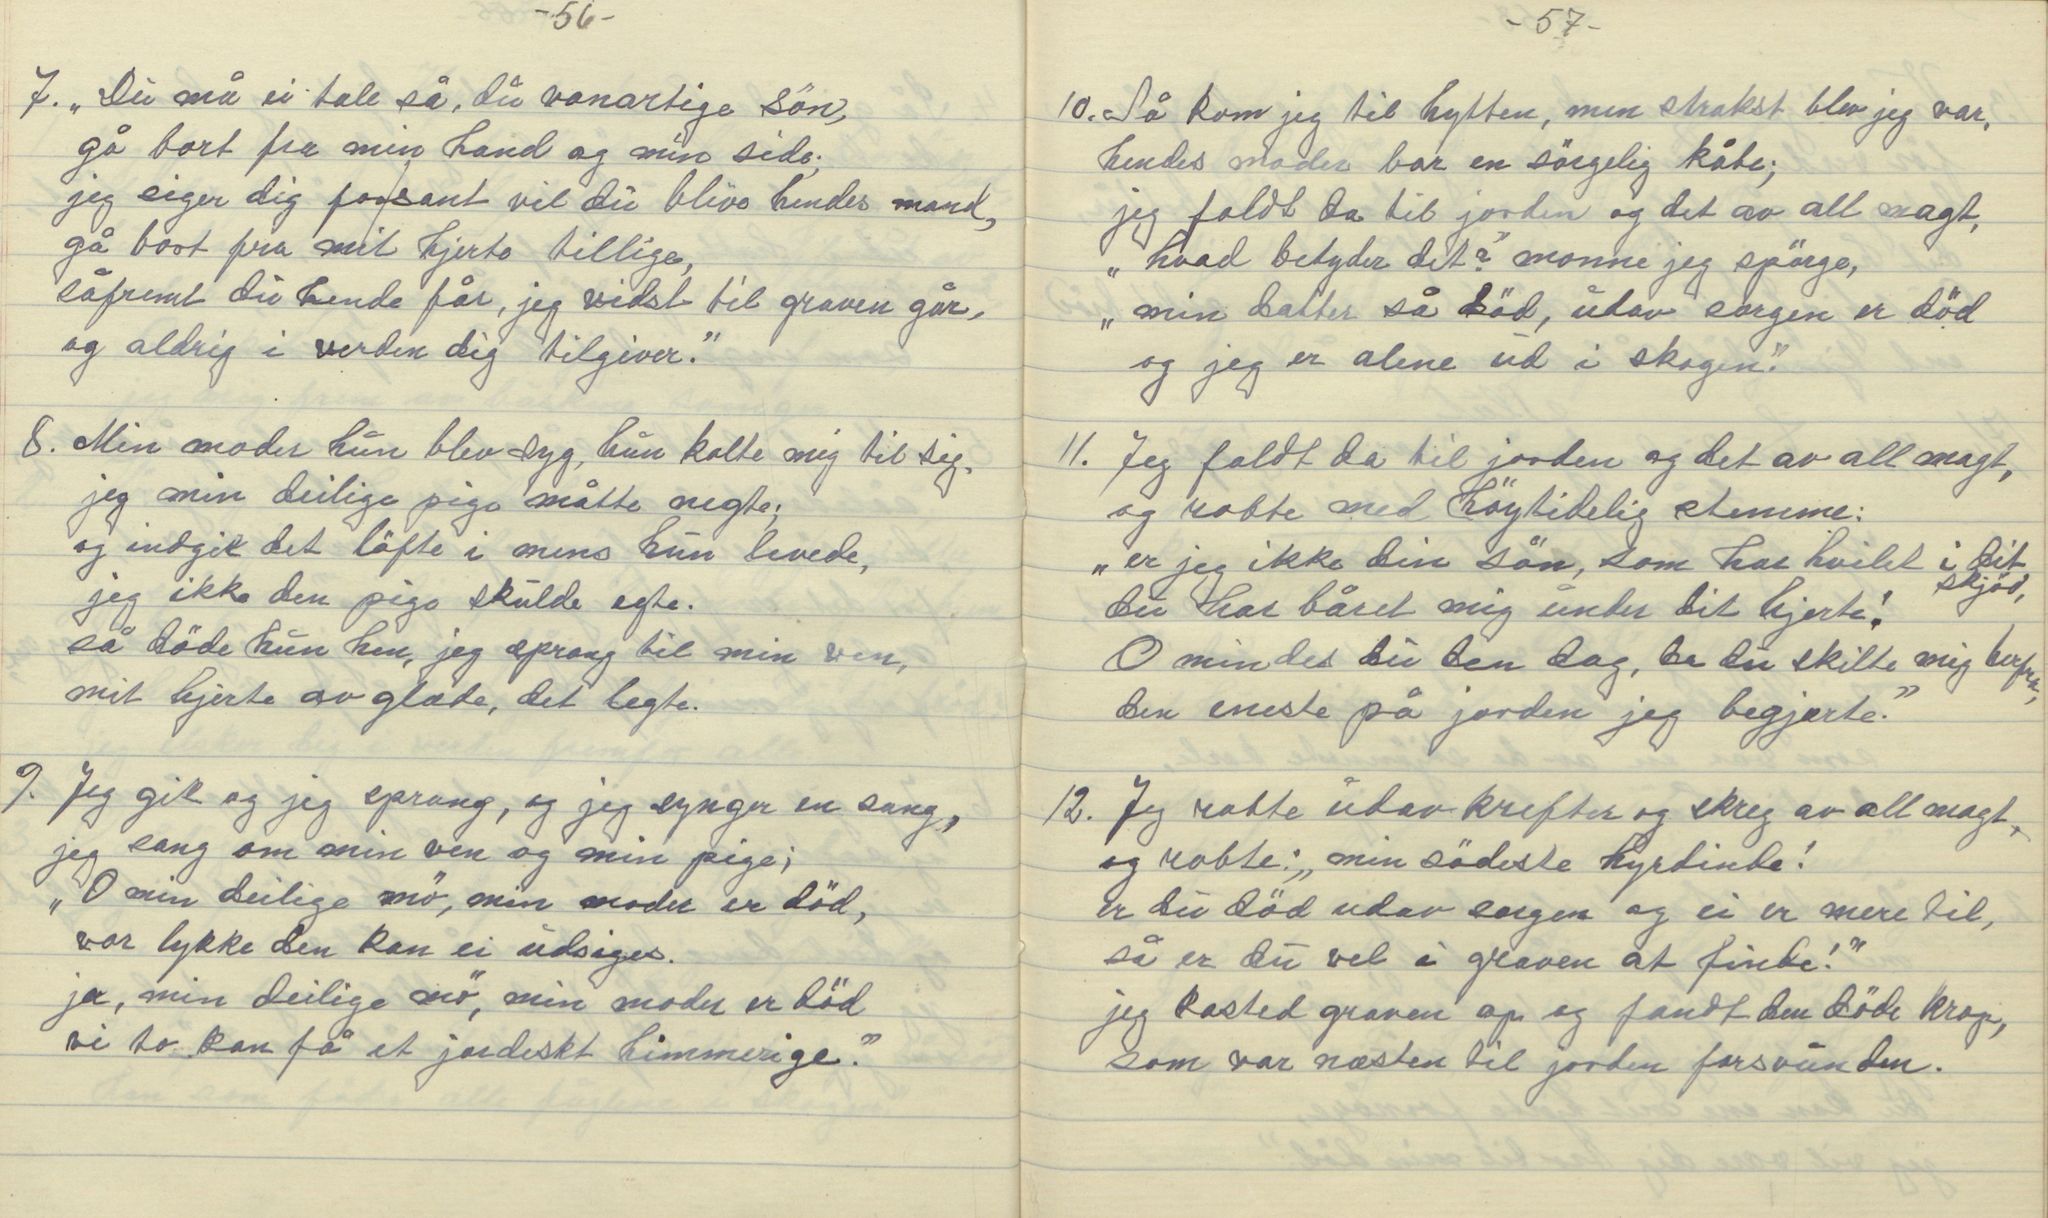 -56-
7. „Du må ei tale så, du vanartige sön,
gå bort fra min hand og min side;
jeg siger dig forsant vil du blive hendes mand,
gå bort fra mit hjerte tillige,
såfremt du hende får, jeg vidst til graven går,
og aldrig i verden dig tilgiver."
8. Min moder hun blev syg, hun kalte mig til sig,
jeg min deilige pige måtte negte;
og indgik det löfte i mens hun levede,
jeg ikke den pige skulde egte.
så döde hun hen, jeg sprang til min ven,
mit hjerte av glæde, det legte.
9. Jeg gik og jeg sprang, og jeg synger en sang,
jeg sang om min ven og min pige;
„O min deilige mö, min moder er död,
vor lykke den kan ei udsiges.
ja, min deilige mö, min moder er död
vi to kan få et jordeskt himmerige."
-57-
10. Så kom jeg til hytten, men strakst blev jeg var,
hendes moder bar en sörgelig kåbe;
jeg faldt da til jorden og det av all magt,
„hvad betyder det?" monne jeg spörge,
„min datter så söd, udav sorgen er död
og jeg er alene ud i skogen."
11. Jeg faldt da til jorden og det av all magt,
og robte med höytidelig stemme:
„er jeg ikke din sön, som har hvilet i dit
skjöd,
du har båret mig under dit hjerte!
O mindes du den dag, da du skilte mig herfra,
den eneste på jorden jeg begjerte."
12. Jeg robte udav krefter og skreg av all magt,
og robte: „min södeste hyrdinde!
er du död udav sorgen og ei er mere til,
så er du vel i graven at finde!"
jeg kasted graven op og fandt den döde krop,
som var næsten til jorden forsvunden.